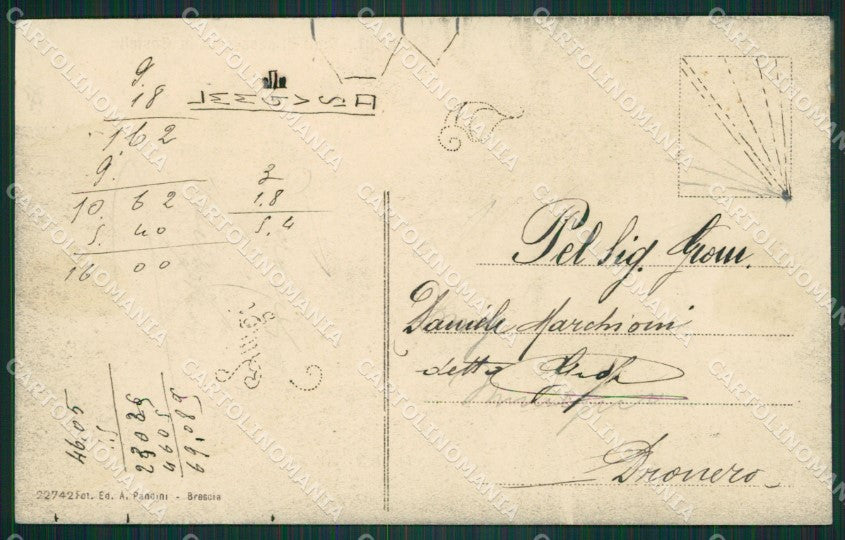 9.
1.8
162
9.
10. 62
5. 40
16 00
3
1.8
5.4
Pel Sig. Geom.
Daniele Marchioni
detto
Dronero
46.05
23025
4605
69.085
22742 Fot. Ed. A. Pandini - Brescia
CARTOLINOMANIA